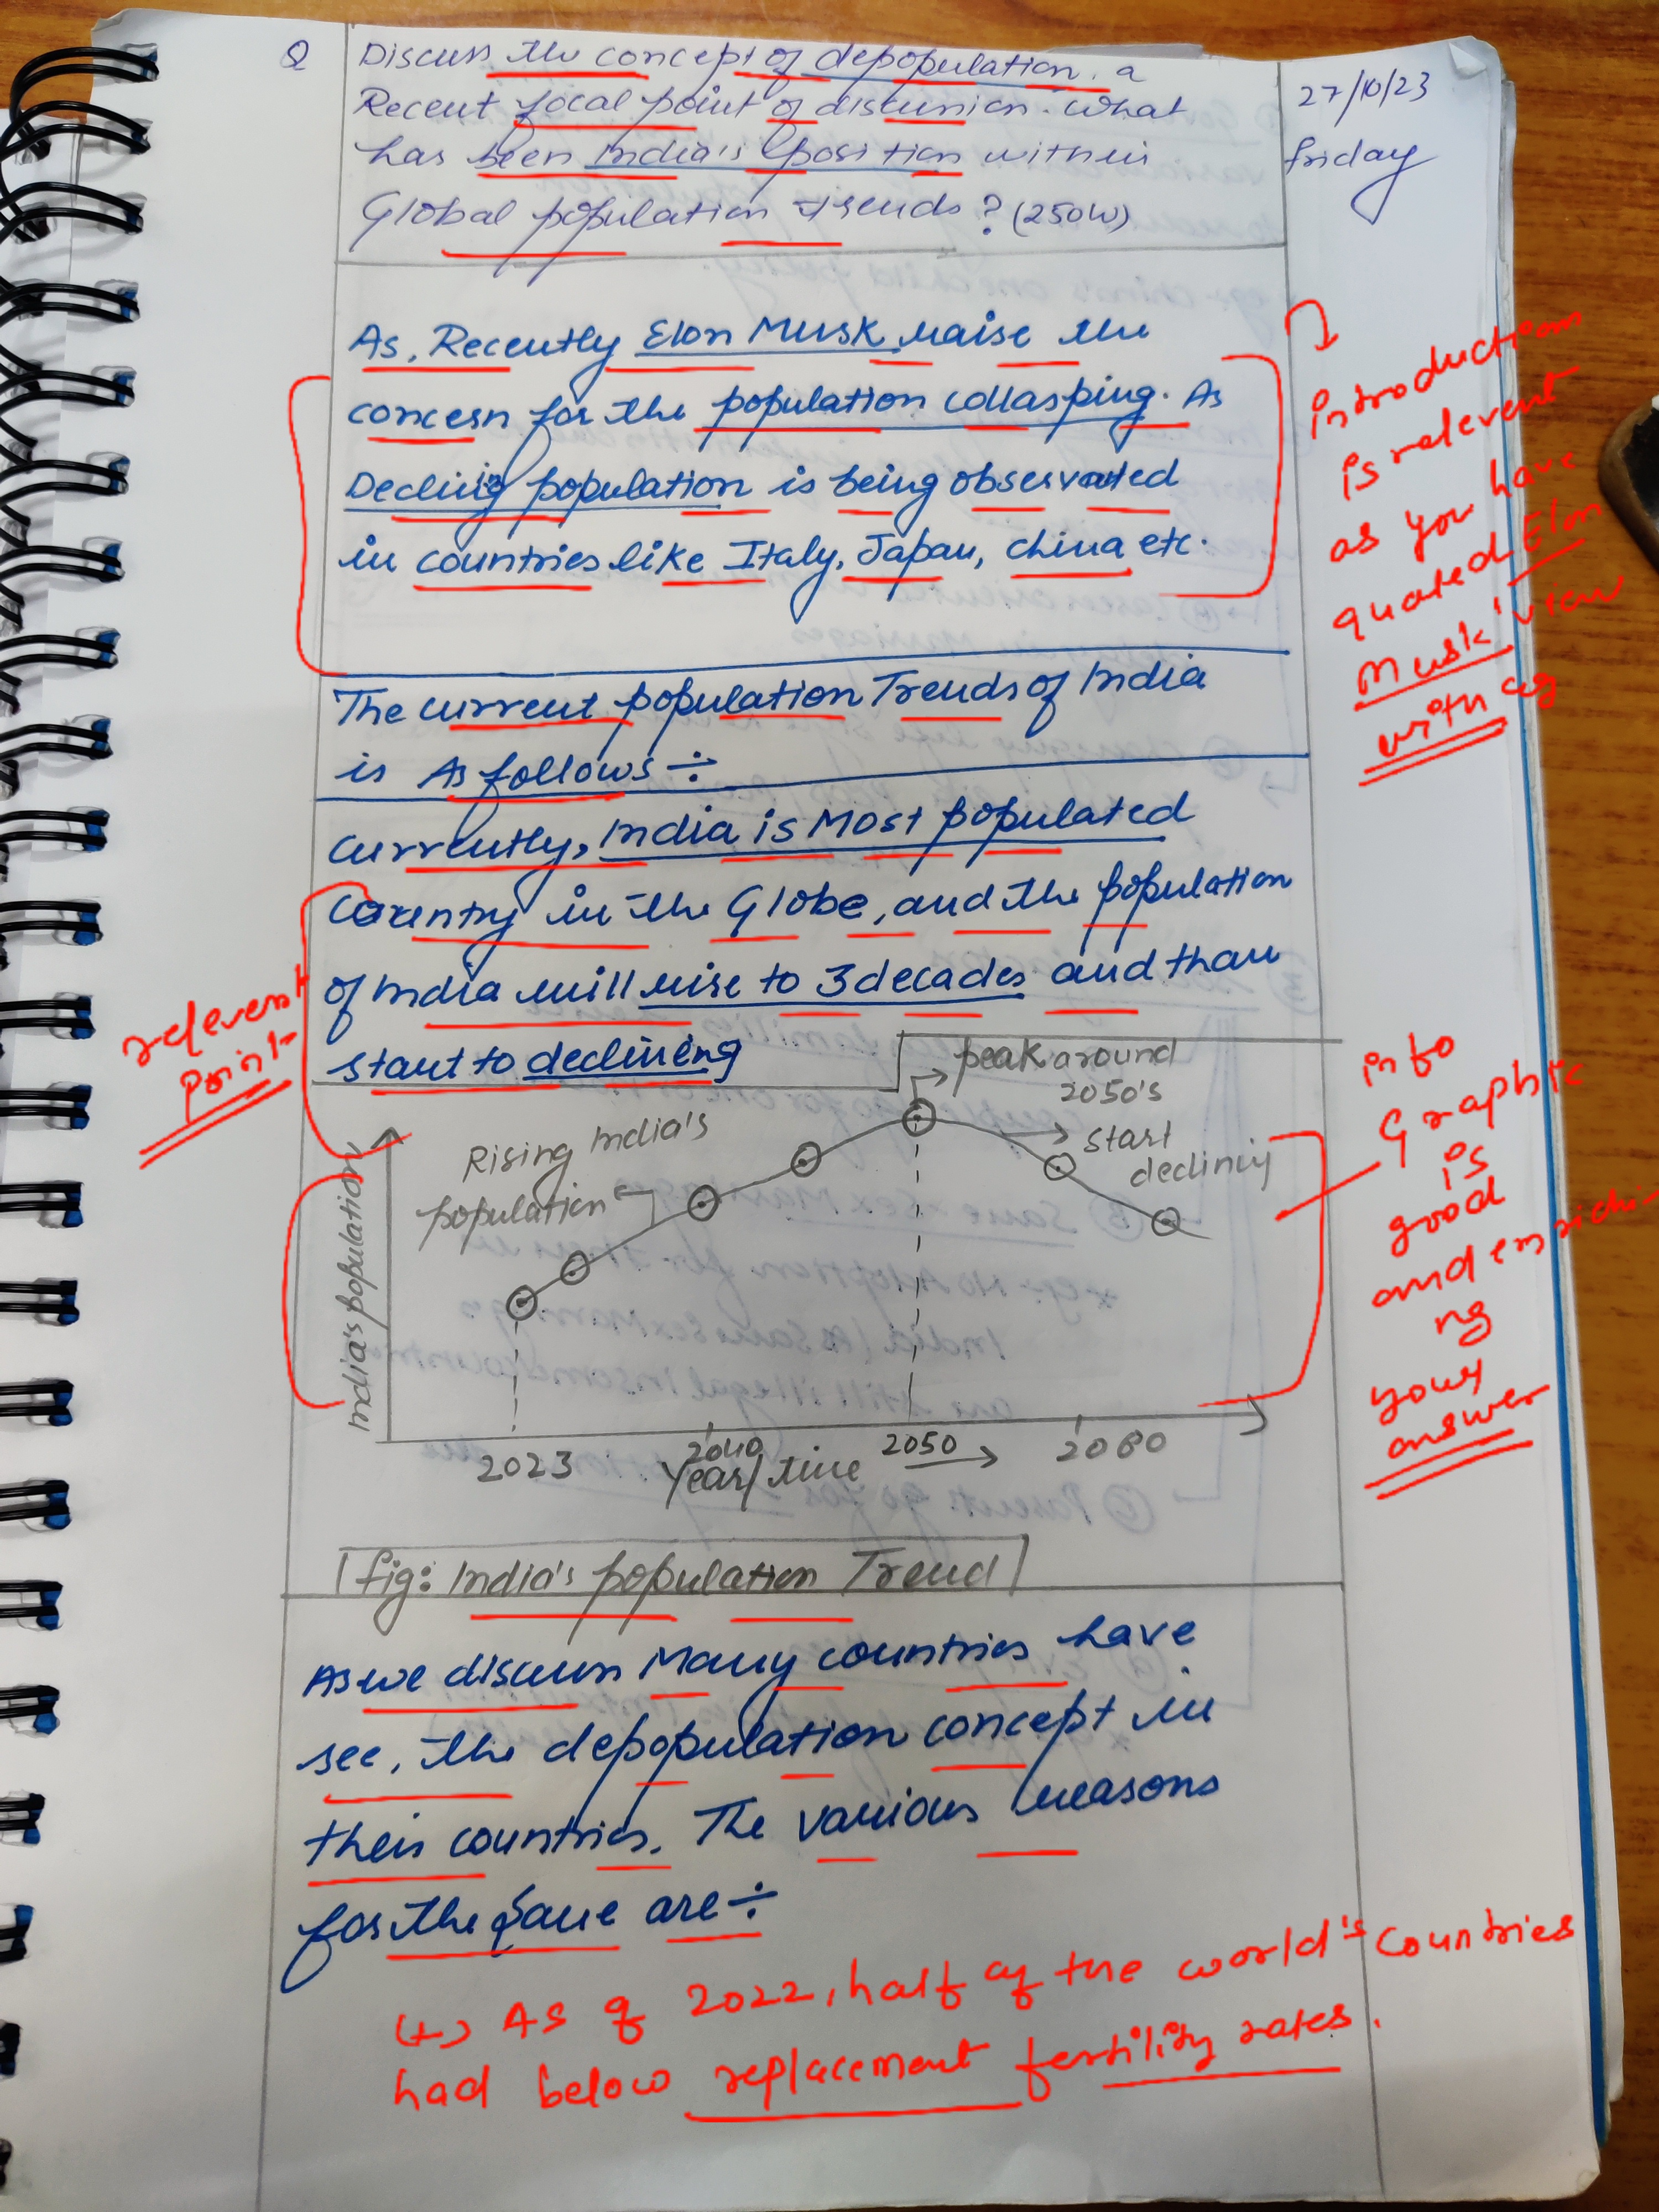 Q Discuss the concept of depopulation, a
Recent focal point of discussion. What
has been India's position within
Global population trends? (250W)
27/10/23
friday
As, Recently Elon Musk raise the
concern for the population collasping. As
Declinig population is being observated
in countries like Italy, Japan, China etc.
introduction
is relevent
as you have
quated Elon
Musk' view
with eg
The current population Trends of India
is As follows ÷
currently, India is Most populated
Country in the Globe, and the population
of India will rise to 3 decades and than
start to declining
relevent
point
peak around
2050's
start
declining
Rising India's
population
India's population
2023
2040
2050
2060
Year/time
info
Graphic
is
good
and enrichi
ng
your
answer
fig: India's population Trend
As we discuss Many countries have
see, the depopulation concept in
their countries. The various reasons
for the same are ÷
(+) As of 2022, half of the world's countries
had below replacement fertility rates.